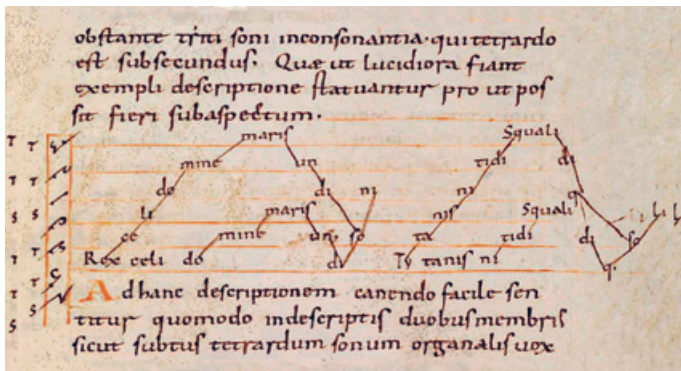 obstante triti soni inconsonantia. qui tetrardo
est subsecundus. Quae ut lucidiora fiant
exempli descriptione statuantur pro ut pos
sit fieri sub aspectum.
T T maris Squali
mine un tidi di
T T do di ni ni q.
S S li maris nis Squali li li
T T ce mine un so ta tidi di so
Rex celi do di Ty tanis ni q.
T T Ad hanc descriptionem canendo facile sen
S titur quomodo in descriptis duobus membris
sicut subtus tetrardum sonum organalis vox